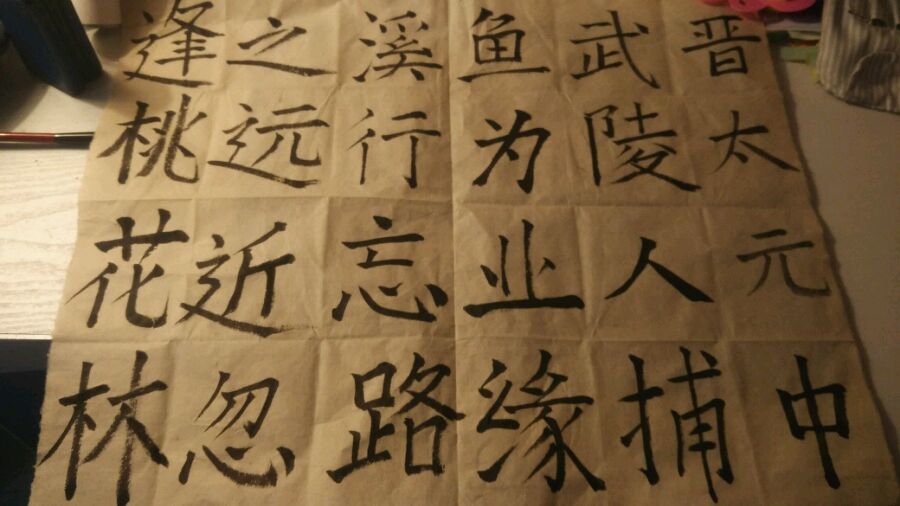 晋太元中
武陵人捕
鱼为业缘
溪行忘路
之远近忽
逢桃花林